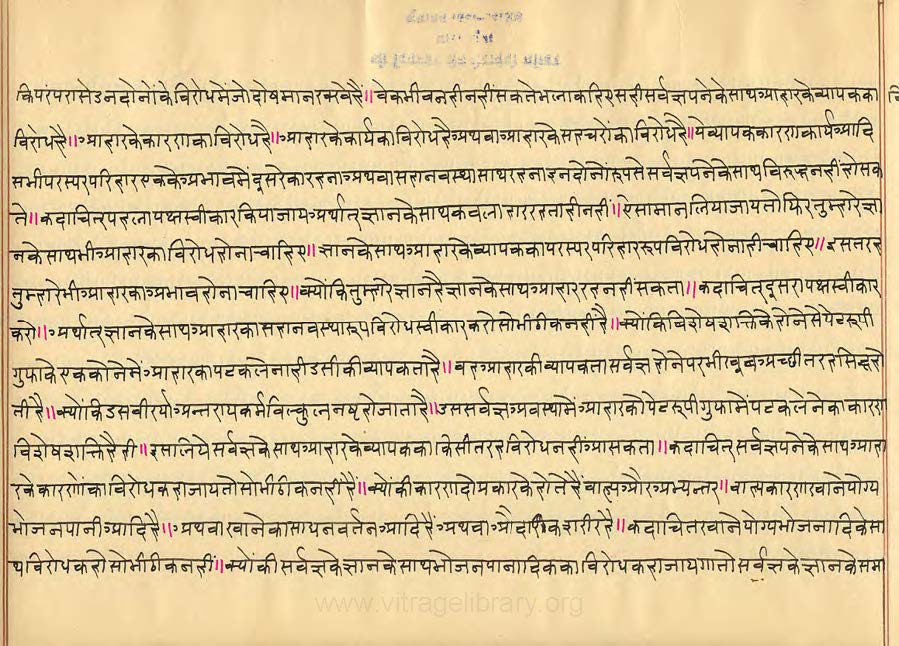 कि परंपरा से उन दोनों के विरोध में जो दोष मान रक्खे हैं॥ वे कभी बन ही नहीं सकते भला कहिए सही सर्वज्ञपने के साथ आहार के व्यापक का
विरोध है॥ आहार के कारण का विरोध है॥ आहार के कार्य का विरोध है अथवा आहार के सहचरों का विरोध है॥ ये व्यापक कारण कार्य आदि
सभी परस्पर परिहार एक के अभाव में दूसरे का रहना अथवा सहानवस्था साथ रहना इन दोनों रूप से सर्वज्ञपने के साथ विरुद्ध नहीं हो सक
ते॥ कदाचित् पहला पक्ष स्वीकार किया जाय अर्थात् ज्ञान के साथ कवलाहार रहता ही नहीं॥ ऐसा मान लिया जाय तो फिर तुम्हारे ज्ञा
न के साथ भी आहार का विरोध होना चाहिए॥ ज्ञान के साथ आहार के व्यापक का परस्पर परिहार रूप विरोध होना ही चाहिए॥ इस तरह
तुम्हारे भी आहार का अभाव होना चाहिए॥ क्योंकि तुम्हारे ज्ञान है ज्ञान के साथ आहार रह नहीं सकता॥ कदाचित् दूसरा पक्ष स्वीकार
करो॥ अर्थात् ज्ञान के साथ आहार का सहानवस्था रूप विरोध स्वीकार करो सो भी ठीक नहीं है॥ क्योंकि विशेष शक्ति के होने से पेट रूपी
गुफा के एक कोने में आहार का पटक लेना ही उसी की व्यापकता है॥ वह आहार की व्यापकता सर्वज्ञ होने पर भी खूब अच्छी तरह सिद्ध हो
ती है॥ क्योंकि उस वीर्य अन्तराय कर्म बिल्कुल नष्ट हो जाता है॥ उस सर्वज्ञ अवस्था में आहार को पेट रूपी गुफा में पटक लेने का कारण
विशेष शक्ति है ही॥ इसलिये सर्वज्ञ के साथ आहार के व्यापक का किसी तरह विरोध नहीं आ सकता॥ कदाचित् सर्वज्ञपने के साथ आहा
र के कारणों का विरोध कहा जाय तो सो भी ठीक नहीं है॥ क्योंकी कारण दो प्रकार के होते हैं बाह्य और अभ्यन्तर॥ बाह्य कारण खाने योग्य
भोजन पानी आदि है॥ अथवा खाने का साधन बर्तन आदि हैं अथवा औदारिक शरीर है॥ कदाचित खाने योग्य भोजनादि के सा
थ विरोध कहो सो भी ठीक नहीं॥ क्योंकी सर्वज्ञ के ज्ञान के साथ भोजन पानादिक का विरोध कहा जायगा तो सर्वज्ञ के ज्ञान के समा
www.vitragelibrary.org